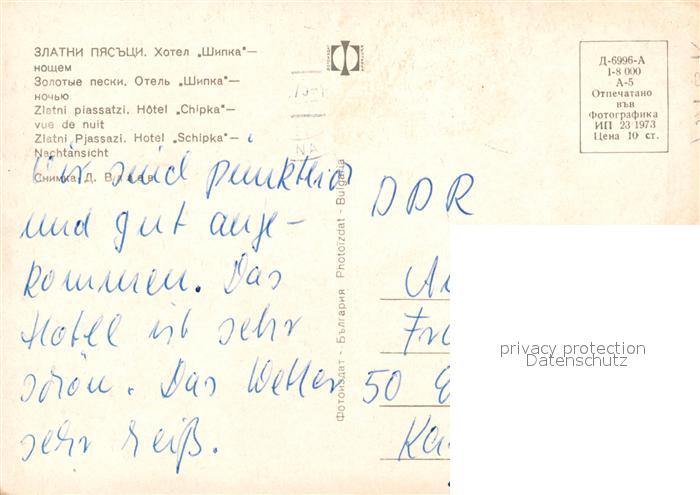 ЗЛАТНИ ПЯСЪЦИ. Хотел „Шипка“—
нощем
Золотые пески. Отель „Шипка“—
ночью
Zlatni piassatzi. Hôtel „Chipka“—
vue de nuit
Zlatni Pjassazi. Hotel „Schipka“—
Nachtansicht
Снимка Д. В
Д-6996-А
1-8 000
А-5
Отпечатано
във
Фотографика
ИП 23 1973
Цена 10 ст.
Фотоиздат - България Photoizdat - Bulgaria
Wir sind pünktlich
und gut ange-
kommen. Das
Hotel ist sehr
schön. Das Wetter
sehr heiß.
DDR
50
privacy protection
Datenschutz